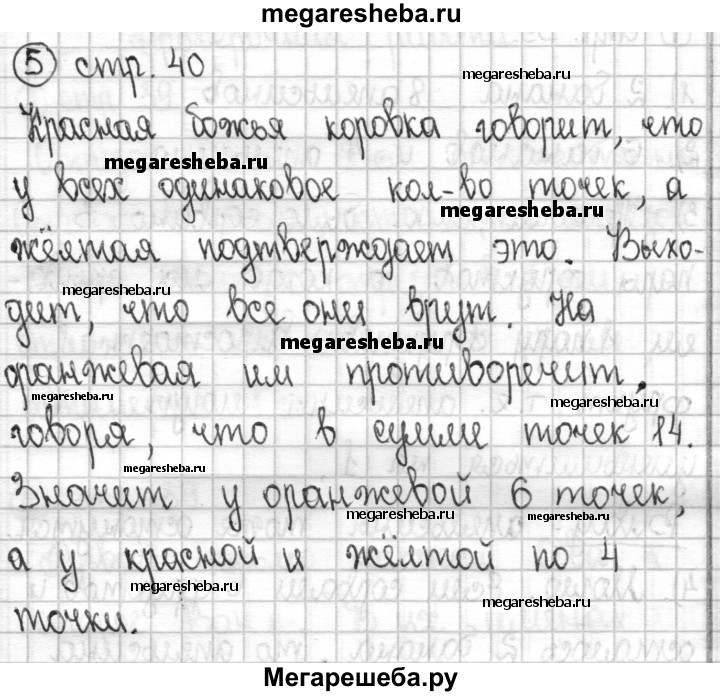 megaresheba.ru
5 стр. 40
megaresheba.ru
Красная божья коровка говорит, что
megaresheba.ru
у всех одинаковое кол-во точек, а
megaresheba.ru
жёлтая подтверждает это. Выхо-
megaresheba.ru
дит, что все они врут. На
megaresheba.ru
оранжевая им противоречит,
megaresheba.ru
megaresheba.ru
говоря, что в сумме точек 14.
megaresheba.ru
Значит у оранжевой 6 точек,
megaresheba.ru
megaresheba.ru
а у красной и жёлтой по 4
megaresheba.ru
megaresheba.ru
точки.
Мегарешеба.ру